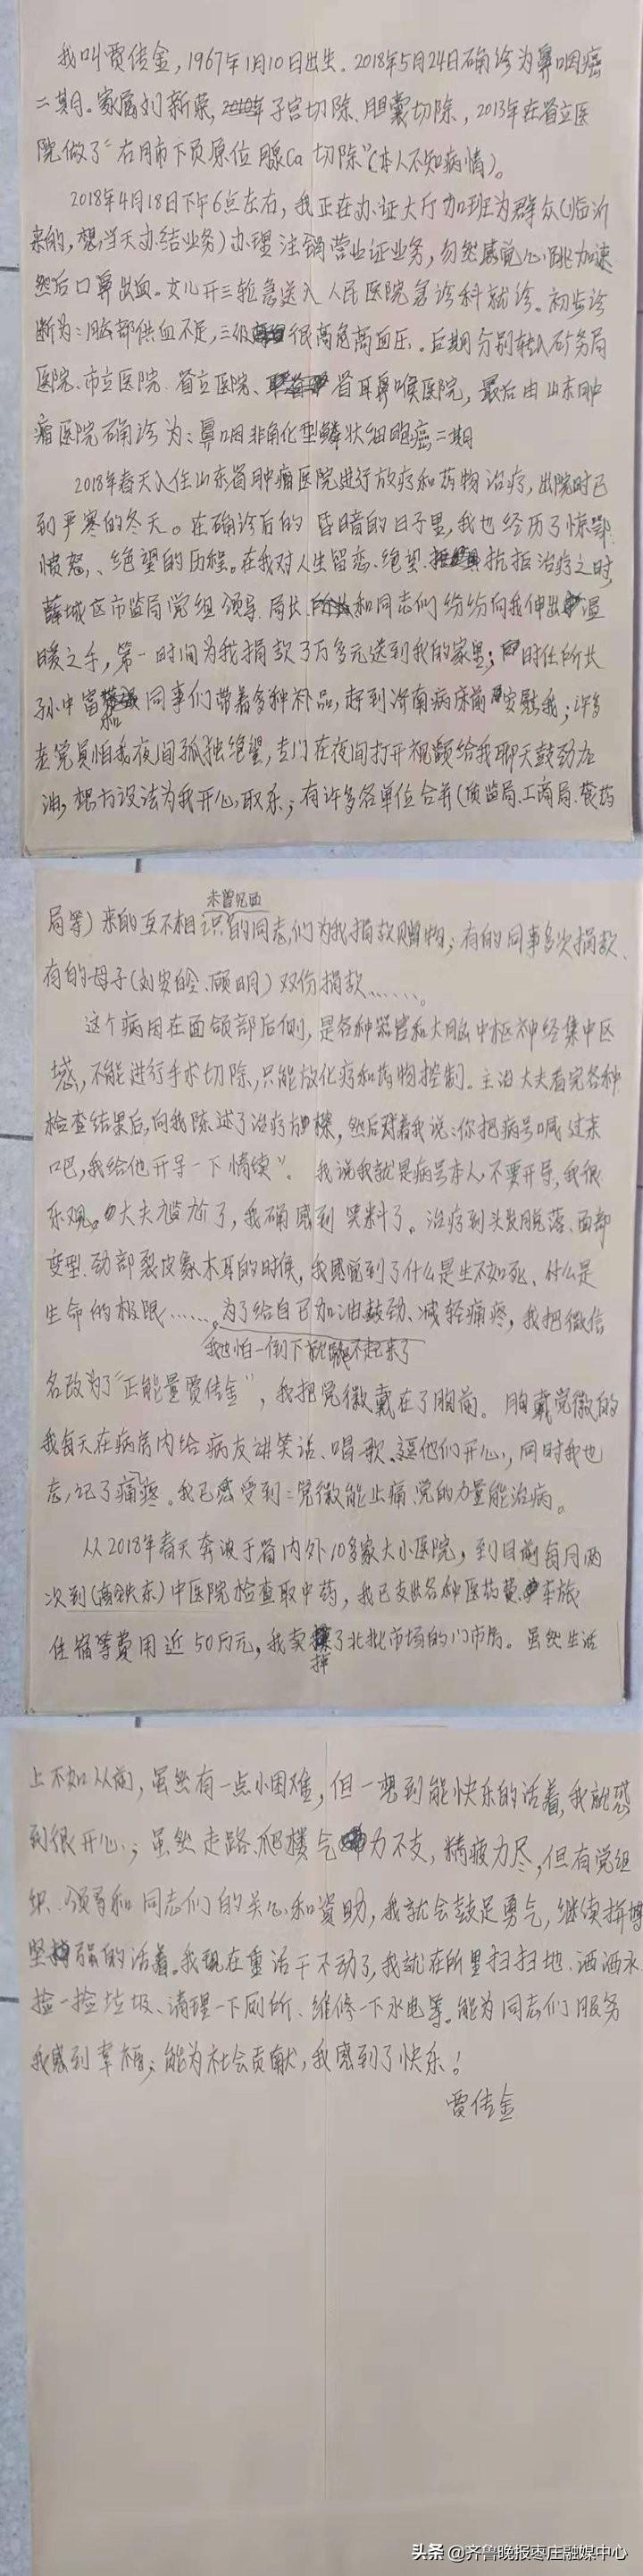 我叫贾传金，1967年1月10日出生。2018年5月24日确诊为鼻咽癌
二期。家属刘新荣，2010年子宫切除、胆囊切除，2013年在省立医
院做了“右肺下页原位腺Ca切除”(本人不知病情)。
2018年4月18日下午6点左右，我正在办证大厅加班为群众(临沂
来的，想当天办结业务)办理注销营业证业务，忽然感觉心跳加速
然后口鼻出血。女儿开三轮急送入人民医院急诊科就诊。初步诊
断为：脑部供血不足，三级很高危高血压。后期分别转入矿务局
医院、市立医院、省立医院、省耳鼻喉医院，最后由山东肿
瘤医院确诊为：鼻咽非角化型鳞状细胞癌二期
2018年春天入住山东省肿瘤医院进行放疗和药物治疗，出院时已
到严寒的冬天。在确诊后的昏暗的日子里，我也经历了惊鄂
愤怒、绝望的历程。在我对人生留恋、绝望、抗拒治疗之时，
薛城区市监局党组领导、局长和同志们纷纷向我伸出温
暖之手，第一时间为我捐款3万多元送到我的家里；时任所长
孙中富和同事们带着多种补品，赶到济南病床前安慰我；许多
老党员怕我夜间孤独绝望，专门在夜间打开视频给我聊天鼓劲加
油，想方设法为我开心取乐；有许多各单位合并(质监局、工商局、食药
局等)来的互不相识未曾见面的同志们为我捐款赠物；有的同事多次捐款、
有的母子(刘安的、顾明)双份捐款……。
这个病因在面颌部后侧，是各种器官和大脑中枢神经集中区
域，不能进行手术切除，只能放化疗和药物控制。主治大夫看完各种
检查结果后，向我陈述了治疗方案，然后对着我说：“你把病号喊过来
吧，我给他开导一下情绪”。我说我就是病号本人，不要开导，我很
乐观。大夫尴尬了，我确感到笑料了。治疗到头发脱落、面部
变型、劲部裂皮象木耳的时候，我感觉到了什么是生不如死、什么是
生命的极限……。为了给自已加油鼓劲、减轻痛疼，我把微信
我也怕一倒下就起不来了
名改为了“正能量贾传金”，我把党徽戴在了胸前。胸戴党徽的
我每天在病房内给病友讲笑话、唱歌、逗他们开心，同时我也
忘记了痛疼。我已感受到：党徽能止痛、党的力量能治病。
从2018年春天奔波于省内外10多家大小医院，到目前每月两
次到(高铁东)中医院检查取中药，我已支出各种医药费、车旅
住宿等费用近50万元，我卖掉了北批市场的门市房。虽然生活
上不如从前，虽然有一点小困难，但一想到能快乐的活着，我就感
到很开心；虽然走路、爬楼气力不支，精疲力尽，但有党组
织、领导和同志们的关心和资助，我就会鼓足勇气，继续拼搏
坚强的活着。我现在重活干不动了，我就在所里扫扫地、洒洒水
捡一捡垃圾、清理一下厕所、维修一下水电等。能为同志们服务
我感到幸福；能为社会贡献，我感到了快乐！
贾传金
头条 @齐鲁晚报枣庄融媒中心